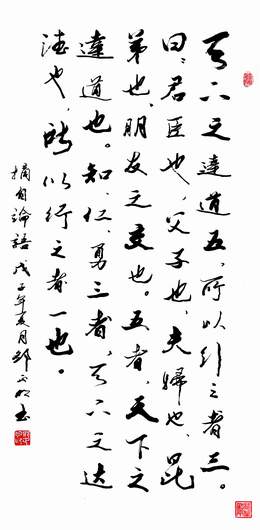 天下之達道五，所以行之者三。
曰：君臣也，父子也，夫婦也，昆
弟也，朋友之交也。五者，天下之
達道也。知、仁、勇三者，天下之达
德也，所以行之者一也。
摘自論語 戊子年夏月 书